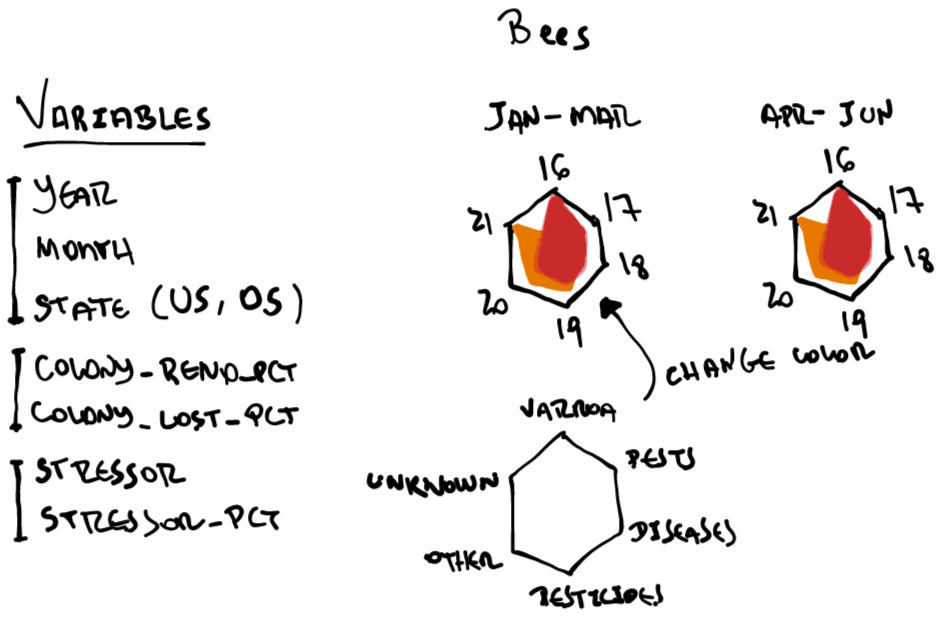 Bees
VARIABLES
YEAR
MONTH
STATE (US, OS)
COLONY_RENO_PCT
COLONY_LOST_PCT
STRESSOR
STRESSOR_PCT
JAN-MAR
16
17
18
19
20
21
APR-JUN
16
17
18
19
20
21
CHANGE COLOR
VARROA
PESTS
DISEASES
PESTICIDES
OTHER
UNKNOWN